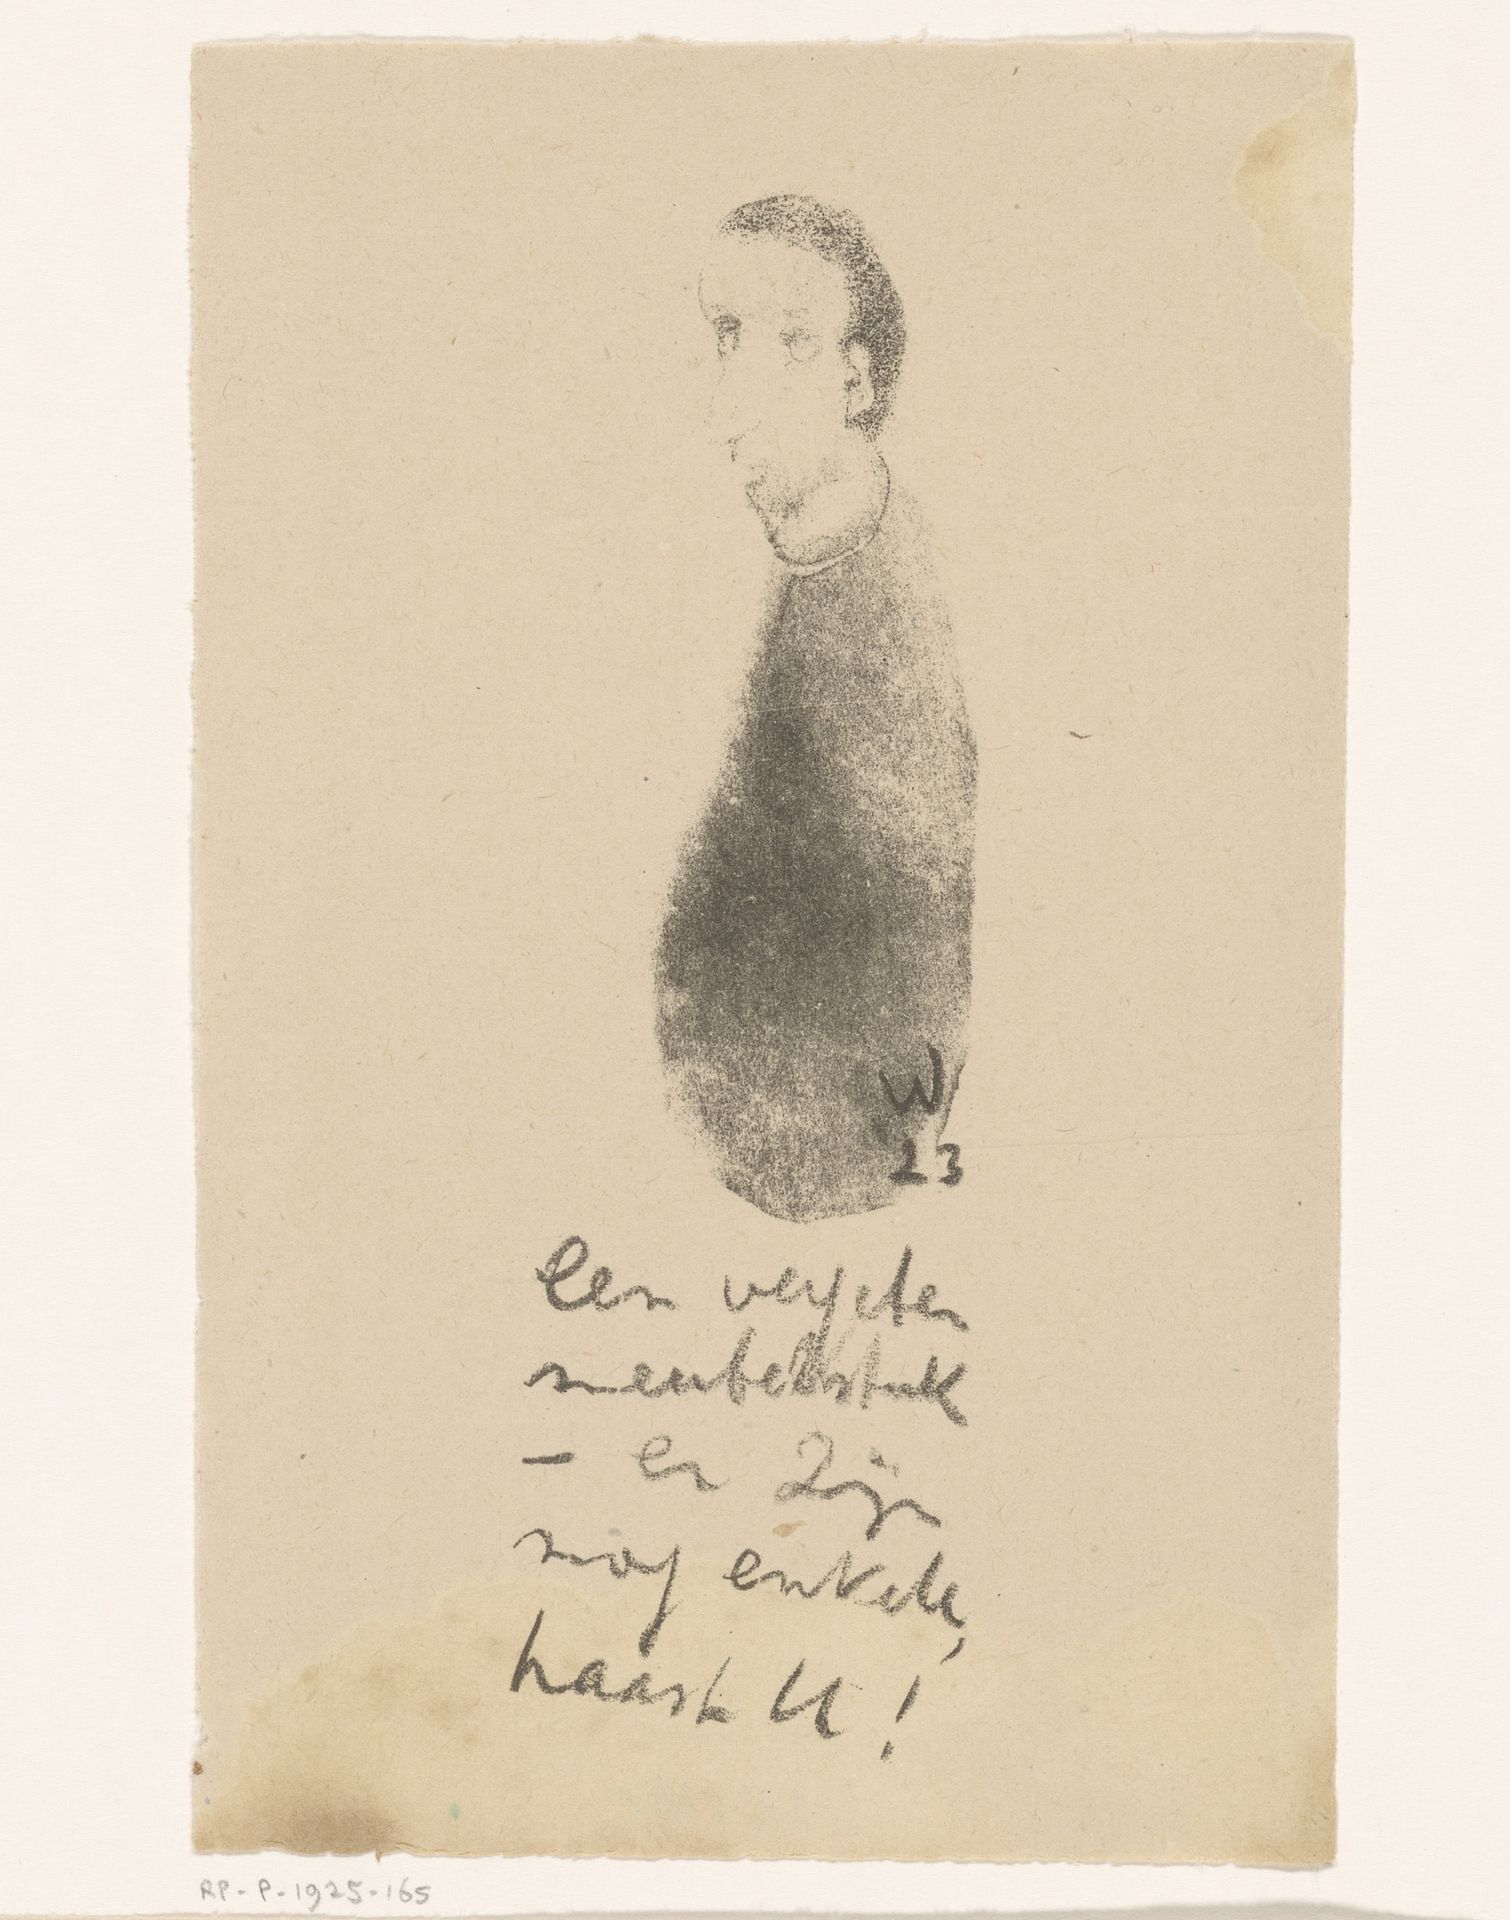 W
23
Een vergeten
meubelstuk
- er zijn
nog enkele,
haast U!
RP-P-1925-165